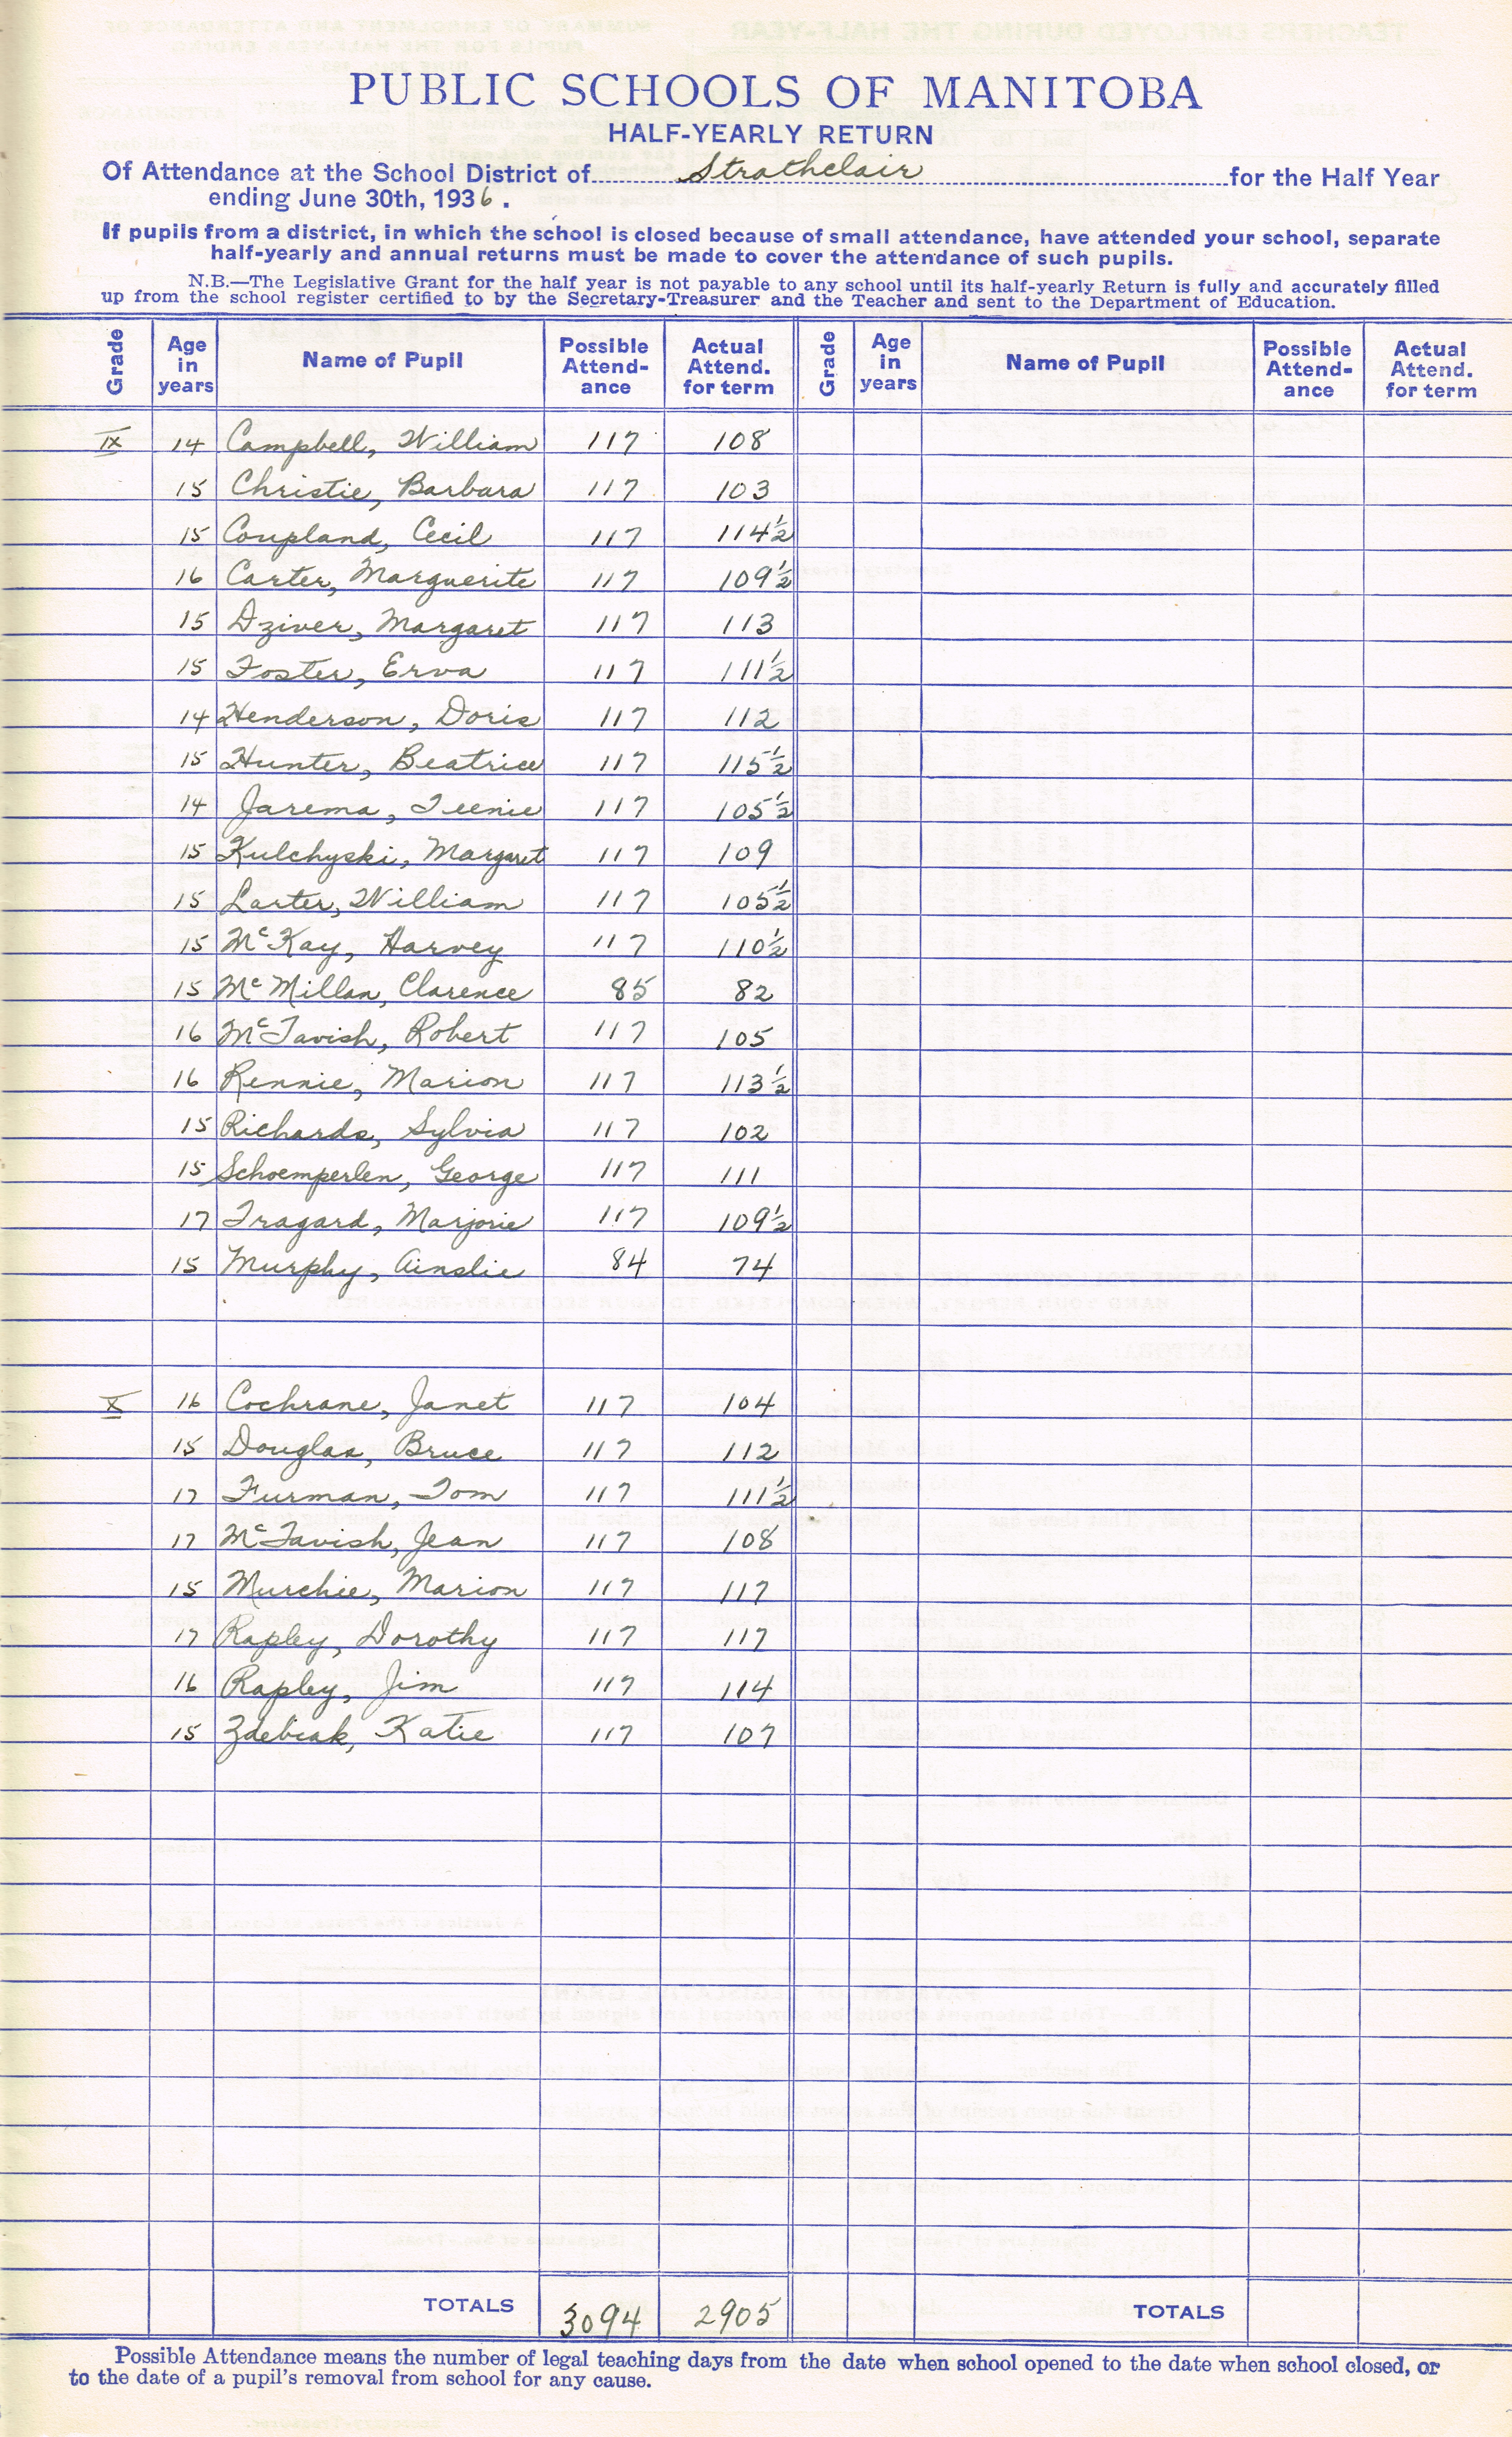 PUBLIC SCHOOLS OF MANITOBA
HALF-YEARLY RETURN
Of Attendance at the School District of Strathclair for the Half Year
ending June 30th, 1936.
If pupils from a district, in which the school is closed because of small attendance, have attended your school, separate
half-yearly and annual returns must be made to cover the attendance of such pupils.
N.B.—The Legislative Grant for the half year is not payable to any school until its half-yearly Return is fully and accurately filled
up from the school register certified to by the Secretary-Treasurer and the Teacher and sent to the Department of Education.
Grade Age in years Name of Pupil Possible Attend-ance Actual Attend. for term Grade Age in years Name of Pupil Possible Attend-ance Actual Attend. for term
IX 14 Campbell, William 117 108
15 Christie, Barbara 117 103
15 Coupland, Cecil 117 114½
16 Carter, Marguerite 117 109½
15 Dziver, Margaret 117 113
15 Foster, Erva 117 111½
14 Henderson, Doris 117 112
15 Hunter, Beatrice 117 115½
14 Jarema, Teenie 117 105½
15 Kulchyski, Margaret 117 109
15 Larter, William 117 105½
15 McKay, Harvey 117 110½
15 McMillan, Clarence 85 82
16 McTavish, Robert 117 105
16 Rennie, Marion 117 113½
15 Richards, Sylvia 117 102
15 Schoemperlen, George 117 111
17 Tragard, Marjorie 117 109½
15 Murphy, Ainslie 84 74
X 16 Cochrane, Janet 117 104
15 Douglas, Bruce 117 112
17 Furman, Tom 117 111½
17 McTavish, Jean 117 108
15 Murchie, Marion 117 117
17 Rapley, Dorothy 117 117
16 Rapley, Jim 117 114
15 Zdebiak, Katie 117 107
TOTALS 3094 2905 TOTALS
Possible Attendance means the number of legal teaching days from the date when school opened to the date when school closed, or
to the date of a pupil's removal from school for any cause.